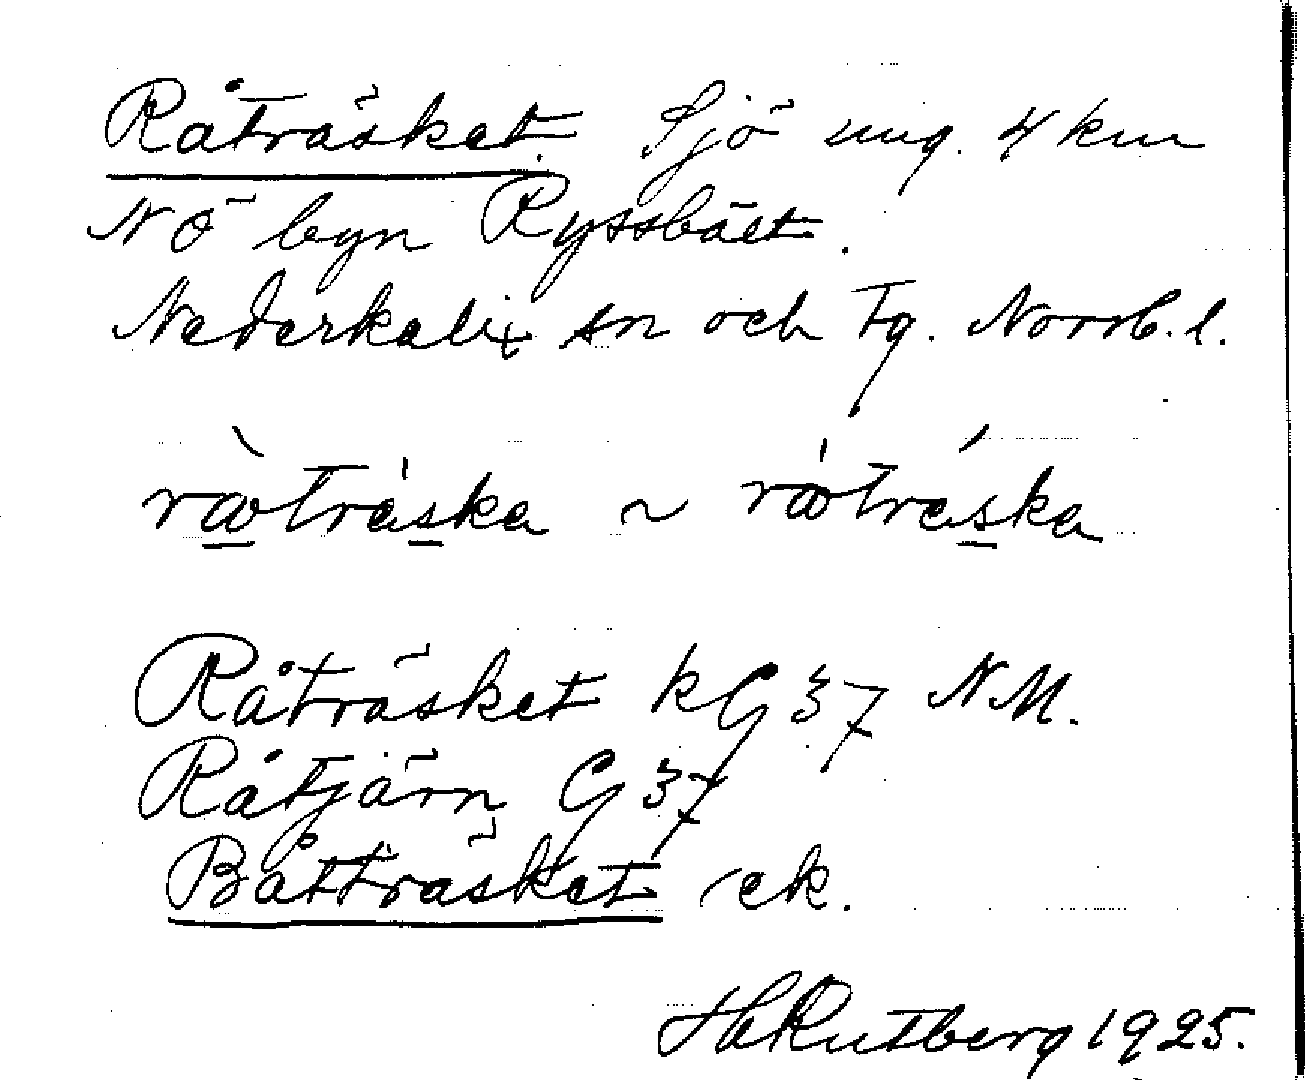 Råträsket. Sjö ung. 4 km
NÖ byn Ryssbält.
Nederkalix sn och tg. Norrb. l.
råträska ~ råträska
Råträsket kG37 NM.
Råtjärn G37
Båtträsket ek.
Hk Rutberg 1925.